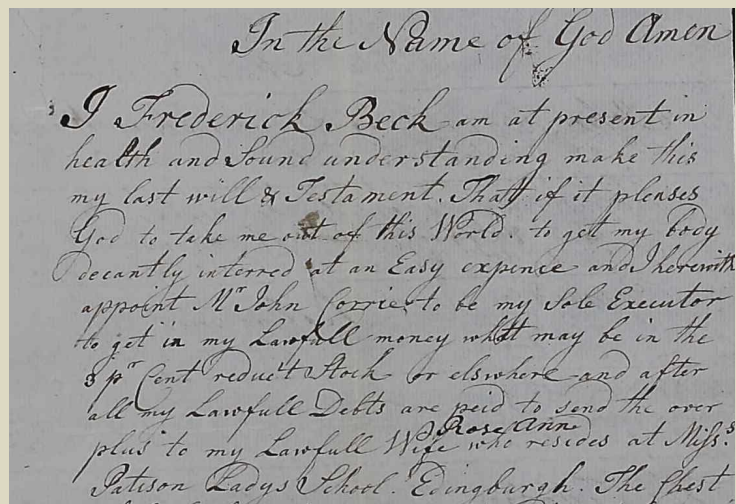 In the Name of God Amen
I Frederick Beck am at present in
health and Sound understanding make this
my last will & Testament. That if it pleases
God to take me out of this World. to get my body
decantly interred at an Easy expence and I herewith
appoint Mr John Corrie to be my Sole Executor
to get in my Lawfull money what may be in the
3 pr Cent reduc't Stock or elsewhere and after
all my Lawfull Debts are peid to send the over
Rose Ann
plus to my Lawfull Wife who resides at Miss.s
Patison Ladys School. Edingburgh. The Chest